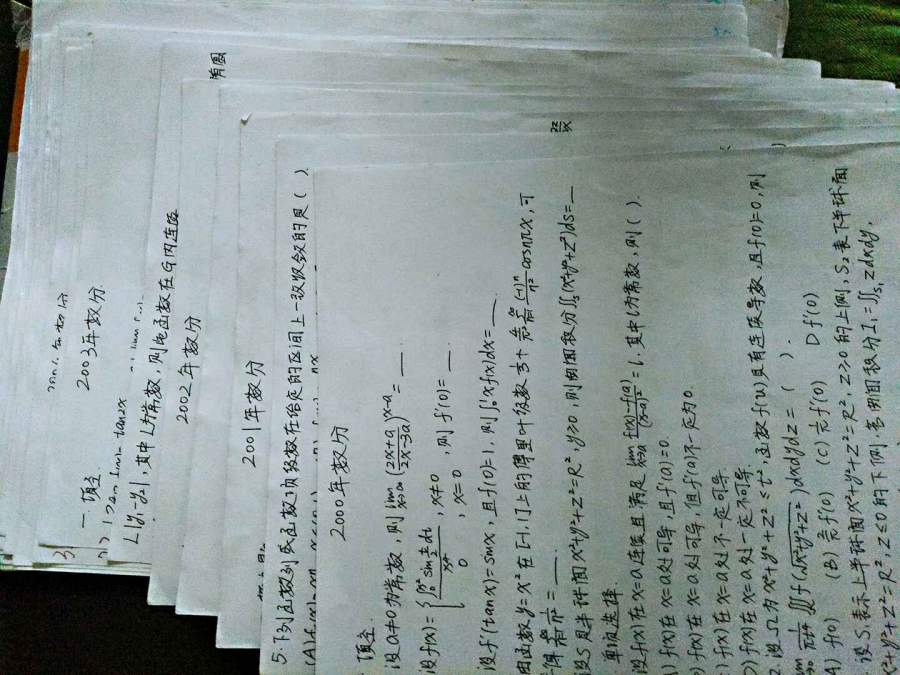 2003年数分
一.填空
lim tan2x
|y₁-y₂|,其中L为常数,则此函数在G内连续
2002年数分
有圆
2001年数分
5.下列函数列或函数项级数在给定的区间上一致收敛的是( )
2000年数分
填空
设a≠0为常数,则lim_{x→∞}(\frac{2x+a}{2x-3a})^{x-a}=___
设f(x)={\frac{∫_0^{x²}sin\frac{1}{t}dt}{x}, x≠0
0, x=0,则f'(0)=___.
设f'(tanx)=sinx,且f(0)=1,则∫_0^1xf(x)dx=___
由函数y=x²在[-1,1]上的傅里叶级数\frac{1}{3}+\frac{4}{π²}\sum_{n=1}^{∞}\frac{(-1)^n}{n²}cosnπx,可
得\sum_{n=1}^{∞}\frac{1}{n²}=___.
设S是半球面x²+y²+z²=R²,y≥0,则曲面积分∬_S(x²+y²+z²)ds=___
单项选择
设f(x)在x=a连续且满足lim_{x→a}\frac{f(x)-f(a)}{(x-a)²}=l.其中l为常数,则( ).
)f(x)在x=a处可导,且f'(a)=0.
)f(x)在x=a处可导,但f'(a)不一定为0.
)f(x)在x=a处不一定可导.
)f(x)在x=a处一定不可导.
2.设Ω为x²+y²+z²≤t²,函数f(u)具有连续导数,且f(0)=0,则
lim_{t→0}\frac{1}{πt⁴}∭f(\sqrt{x²+y²+z²})dxdydz=( ).
A)f(0) (B)\frac{1}{π}f'(0) (C)\frac{2}{π}f'(0) D f'(0)
设S₁表示上半球面x²+y²+z²=R²,z≥0的上侧,S₂表下半球面
x²+y²+z²=R²,z≤0的下侧,若曲面积分I₁=∬_{S₁}zdxdy,